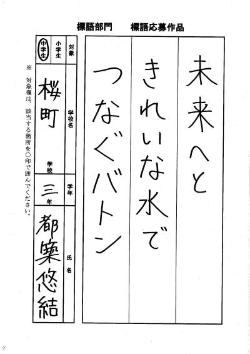 標語部門　標語応募作品
未来へと
きれいな水で
つなぐバトン
対象
小学生
中学生
学校名
桜町
学校
学年
三年
氏名
都築悠結
※ 対象欄は、該当する箇所を○印で囲んでください。